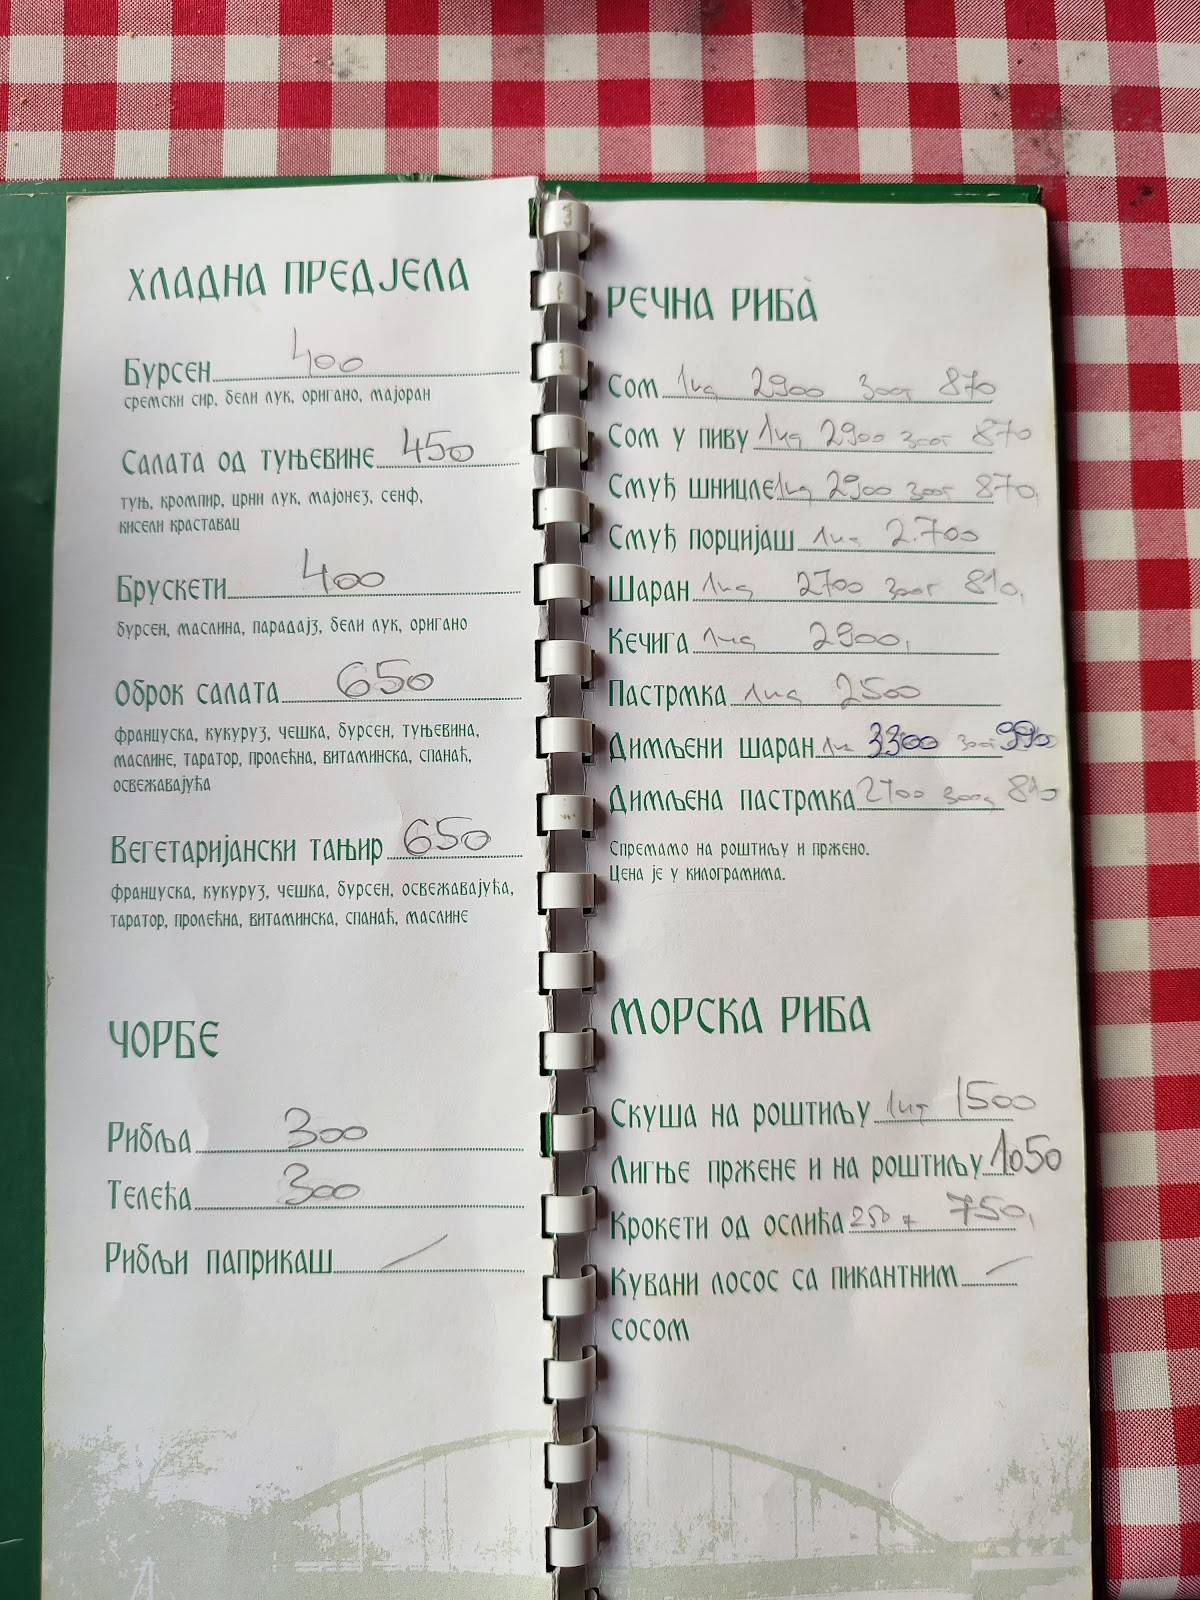 ХЛАДНА ПРЕДЈЕЛА
Бурсен 400
сремски сир, бели лук, оригано, мајоран
Салата од туњевине 450
туњ, кромпир, црни лук, мајонез, сенф,
кисели краставац
Брускети 400
бурсен, маслина, парадајз, бели лук, оригано
Оброк салата 650
француска, кукуруз, чешка, бурсен, туњевина,
маслине, таратор, пролећна, витаминска, спанаћ,
освежавајућа
Вегетаријански тањир 650
француска, кукуруз, чешка, бурсен, освежавајућа,
таратор, пролећна, витаминска, спанаћ, маслине
ЧОРБЕ
Рибља 300
Телећа 300
Рибљи паприкаш /
РЕЧНА РИБА
Сом 1кг 2900 300г 870
Сом у пиву 1кг 2900 300г 870
Смуђ шницле 1кг 2900 300г 870,
Смуђ порцијаш 1кг 2.700
Шаран 1кг 2700 300г 810,
Кечига 1кг 2900,
Пастрмка 1кг 2500
Димљени шаран 1кг 3300 300г 990
Димљена пастрмка 2700 300г 810
Спремамо на роштиљу и пржено.
Цена је у килограмима.
МОРСКА РИБА
Скуша на роштиљу 1кг 1500
Лигње пржене и на роштиљу 1050
Крокети од ослића 250 г 750,
Кувани лосос са пикантним /
сосом